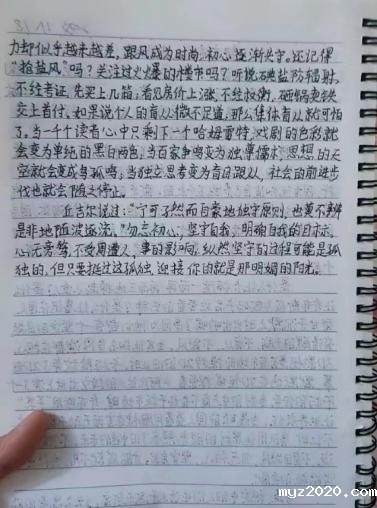 力却似乎越来越差，跟风成为时尚，初心逐渐失守。还记得
“抢盐风”吗？关注过火爆的楼市吗？听说碘盐防辐射，
不经考证，先买上几箱；看见房价上涨，不经权衡，砸锅卖铁
交上首付。如果说个人的盲从微不足道，那么集体盲从就可怕
了。当一千个读者心中只剩下一个哈姆雷特，戏剧的色彩就
会变为单纯的黑白两色；当百家争鸣变为独尊儒术，思想的天
空就会变成寺孤鸣；当独立思考变为盲目跟从，社会的前进步
伐也就会随之停止。
丘吉尔说过：“宁可孑然而自豪地独守原则，也莫不辨
是非地随波逐流。”勿忘初心，坚守自我，明确自我的目标，
心无旁骛，不受周遭人，事的影响。纵然坚守的过程可能是孤
独的，但只要挺过这孤独，迎接你的就是那明媚的阳光。
myz2020.com